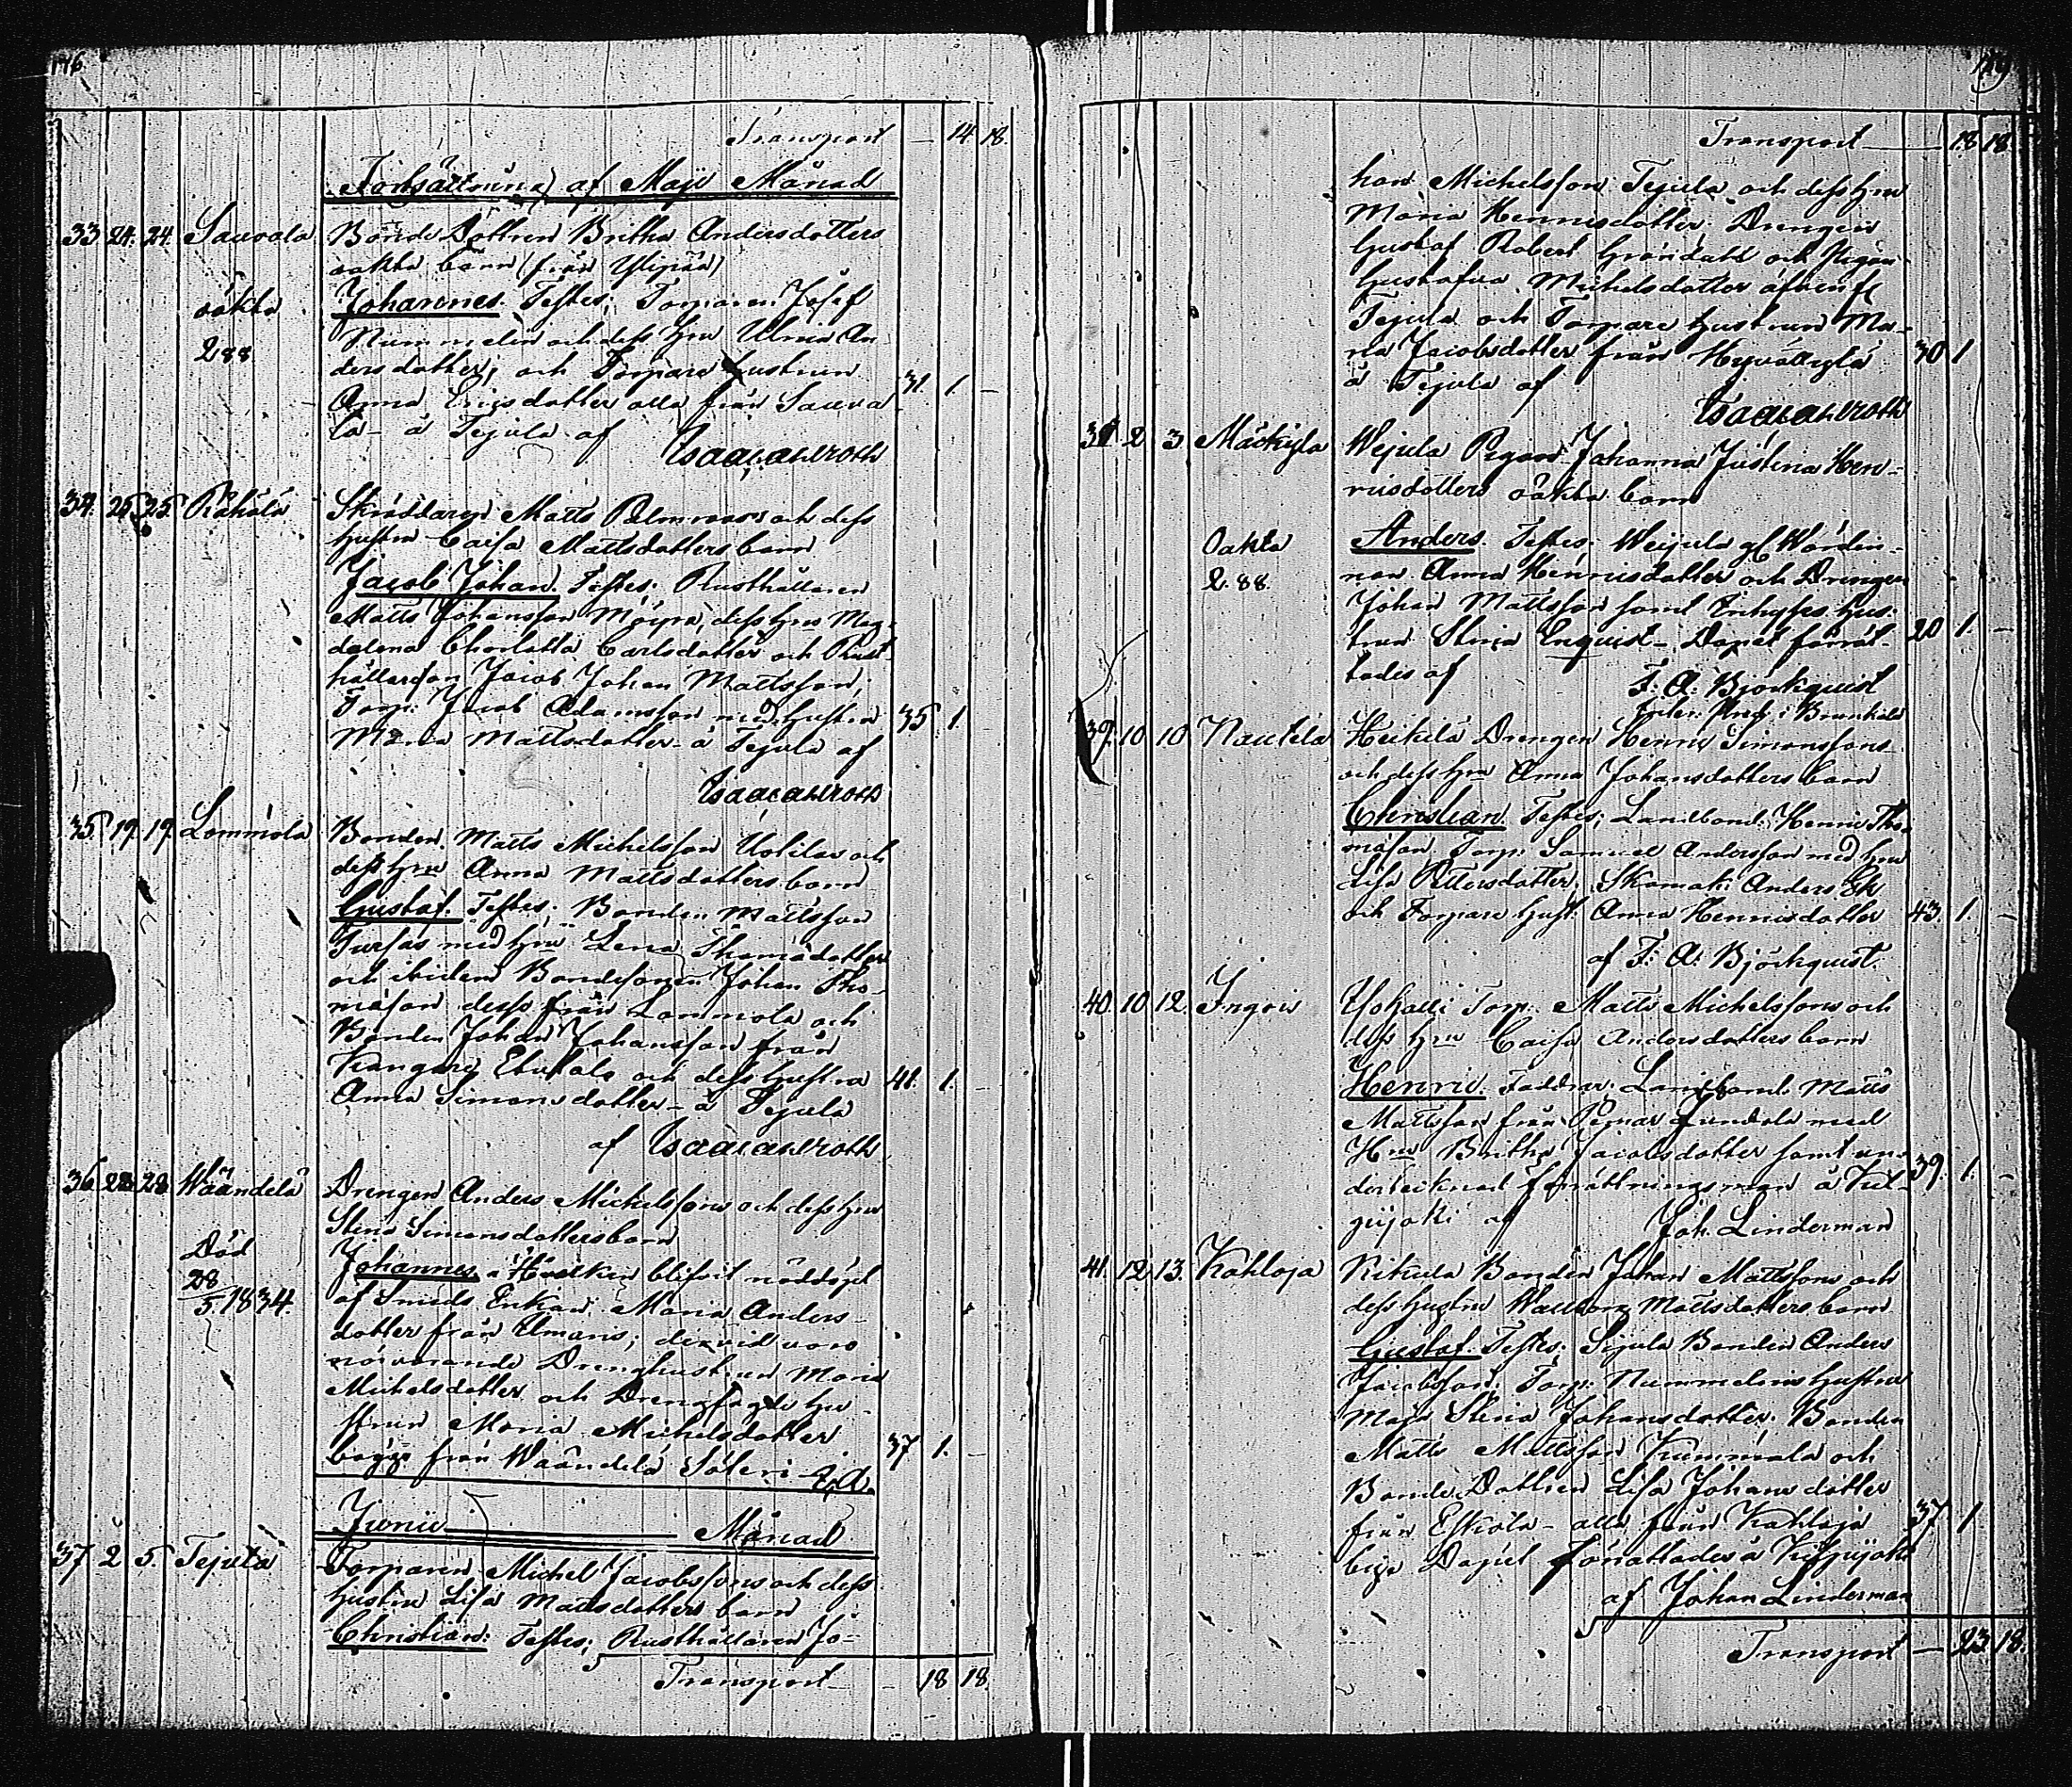 146.
Transport — 14. 18.
Fortsättning af Maji Månad
33 24. 24. Sauvala Bonde Dottren Britha Andersdotters
oäkta barn (från Ylipää)
oäkta Johannes. Testes; Torparen Josef
288. Nummelin och dess Hru Ulrica An-
dersdotter; och Torpare hustrun
Anna Ericsdotter alla från Sauva- 31. 1. —
la — å Tejula af
Isaac Ahlroth
34. 25. 25. Rahola Skräddaren Matts Palmroos och dess
hustru Caisa Mattsdotters barn
Jacob Johan Testes; Rusthållaren
Matts Johansson Möyrä, dess Hru Mag-
dalena Charlotta Carlsdotter och Rust-
hållarson Jacob Johan Mattsson;
Torp: Jacob Adamsson med hustru 35 1.
Maria Mattsdotter — å Tejula af
Isaac Ahlroth
35. 19. 19. Lommola Bonden Matts Michelsson Uotilas och
dess Hru Anna Mattsdotters barn
Gustaf. Testes; Bonden Mattsson
med Hru Lena Thomasdotter
och ibidem Bondesonen Johan Tho-
masson desse från Lommola och
Bonden Johan Johansson från
Kangare och dess hustru 41. 1. —
Anna Simonsdotter — å Tejula
af Isaac Ahlroth
36. 28 28 Wäändelä Drengen Anders Michelssons och dess Hru
Stina Simonsdotters barn
Död Johannes, Hvilken blifvit nöddöpt
28 af Smeds Enkan Maria Anders-
5. 1834. dotter från ; dervid voro
närvarande Drenghustrun Maria
Michelsdotter och hu-
strun Maria Michelsdotter 37 1. —
bägge från Wäändelä
Junii Månad
37 2 5. Tejula Torparen Michel Jacobssons och dess
hustru Lisa Mattsdotters barn
Christian: Testes; Rusthållaren Jo-
Transport — 18 18.
Transport — 18 18
han Michelsson Tejula och dess Hru
Maria Henricsdotter. Drengen
Gustaf Robert Gröndahl och Pigan
Gustafva Michelsdotter
Tejula och Torpare hustrun Ma-
ria Jacobsdotter från 30 1
å Tejula af
Isaac Ahlroth
38 2 3. Mäckylä Wejula Pigans Johanna Justina Hen-
ricsdotters oäkta barn
Oäkta Anders. Testes: Weijula
288. Anna Henricsdotter och Drengen
Johan Mattsson samt hus-
trun Stina Enquist — Dopet förrät- 20 1. —
tades af
F. A: Björkquist
39. 10 10 Nautela Heikilä Drengen Henric Simonssons
och dess Hru Anna Johansdotters barn
Christian. Testes; Landbond: Henric Tho-
masson, Torp: Samuel Andersson med Hru
Lisa Pettersdotter; Skomak: Anders Ek
och Torpare Hust: Anna Henricsdotter 43. 1.
af F: A: Björkquist.
40. 10 12. Ingois Torp: Matts Michelssons och
dess Hru Caisa Andersdotters barn
Henric. Faddrar; Landbond: Matts
Mattsson från Pemar med
Hru Britha Jacobsdotter samt un- 39. 1. —
dertecknad förrättningsman å
af Joh. Linderman
41. 12. 13. Kahloja Kikula Bonden Johan Mattssons och
dess hustru Walborg Mattsdotters barn
Gustaf. Testes; Sijula Bonden Anders
Jacobsson; Torp: Nummelins hustru
Maja Stina Johansdotter. Bonden
Matts Mattsson Kummala och
Bonde Dottren Lisa Johansdotter
från Eskola — alla från Kahloja 37. 1
by. Dopet förrättades å
af Johan Linderman
Transport — 23 18.